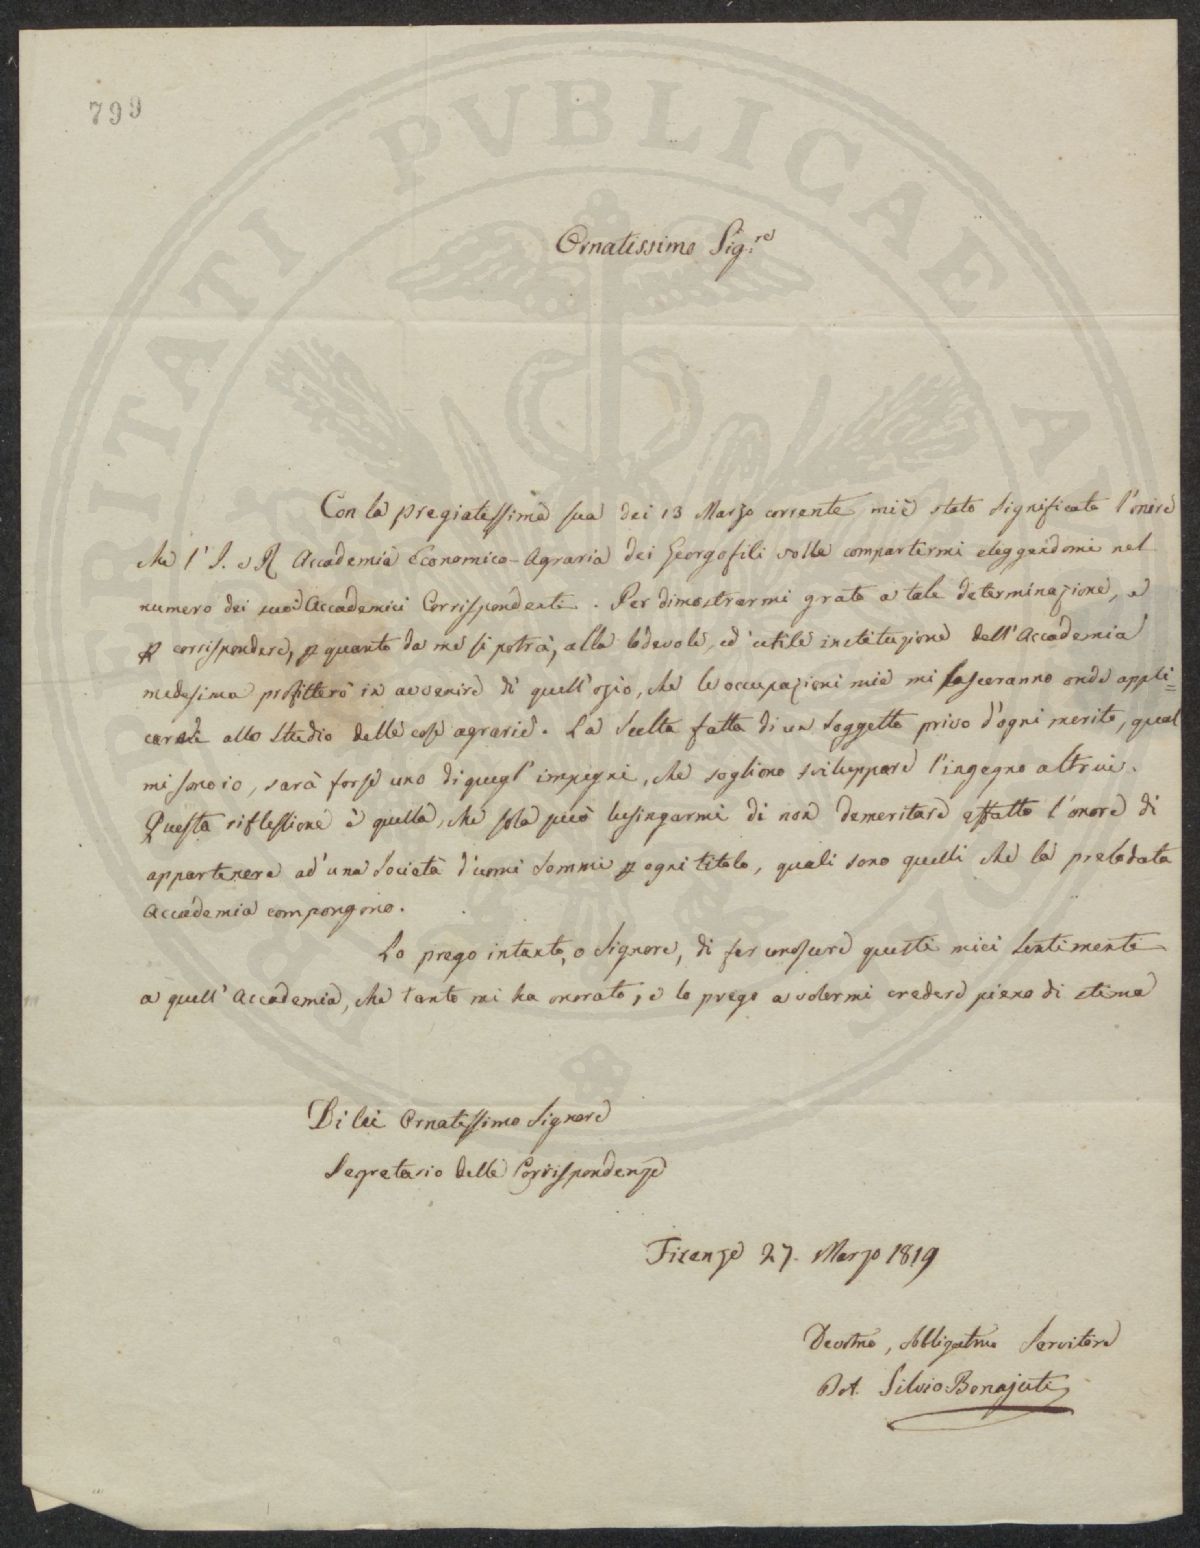 799
PROSPERITATI PVBLICAE AVGENDAE
Ornatissimo Sig.re
Con la pregiatissima sua dei 13 Marzo corrente, mi è stato significato l'onore
che l'I. e R. Accademia Economico-Agraria dei Georgofili volle compartirmi eleggendomi nel
numero dei suoi Accademici Corrispondenti. Per dimostrarmi grato a tale determinazione, e
p corrispondere, p quanto da me si potrà, alla lodevole, ed utile instituzione dell'Accademia
medesima profitterò in avvenire di quell'ozio, che le occupazioni mie mi lasceranno onde appli=
carmi allo studio delle cose agrarie. La scelta fatta di un soggetto privo d'ogni merito, qual
mi sono io, sarà forse uno di quegl'impegni, che sogliono sviluppare l'ingegno altrui.
Questa riflessione è quella, che sola può lusingarmi di non demeritare affatto l'onore di
appartenere ad una Società d'uomi sommi p ogni titolo, quali sono quelli che la prelodata
Accademia compongono.
Lo prego intanto, o Signore, di far conoscere questi miei sentimenti
a quell'Accademia, che tanto mi ha onorato, e lo prego a volermi credere pieno di stima
Di lei Ornatissimo Signore
Segretario delle Corrispondenze
Firenze 27. Marzo 1819
Devotmo, Obbligatmo Servitore
Dot. Silvio Bonajuti